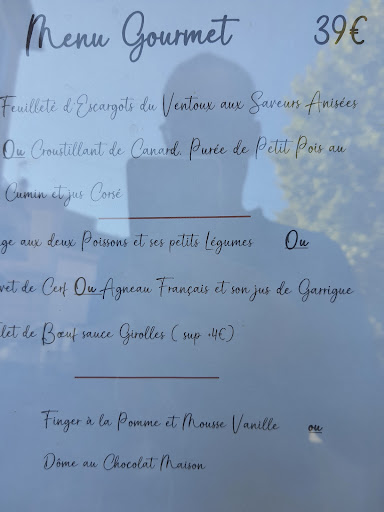 Menu Gourmet 39€
Feuilleté d'Escargots du Ventoux aux Saveurs Anisées
Ou Croustillant de Canard, Purée de Petit Pois au
Cumin et jus Corsé
aux deux Poissons et ses petits Légumes Ou
de Cerf Ou Agneau Français et son jus de Garrigue
de Bœuf sauce Girolles ( sup .4€)
Finger à la Pomme et Mousse Vanille ou
Dôme au Chocolat Maison